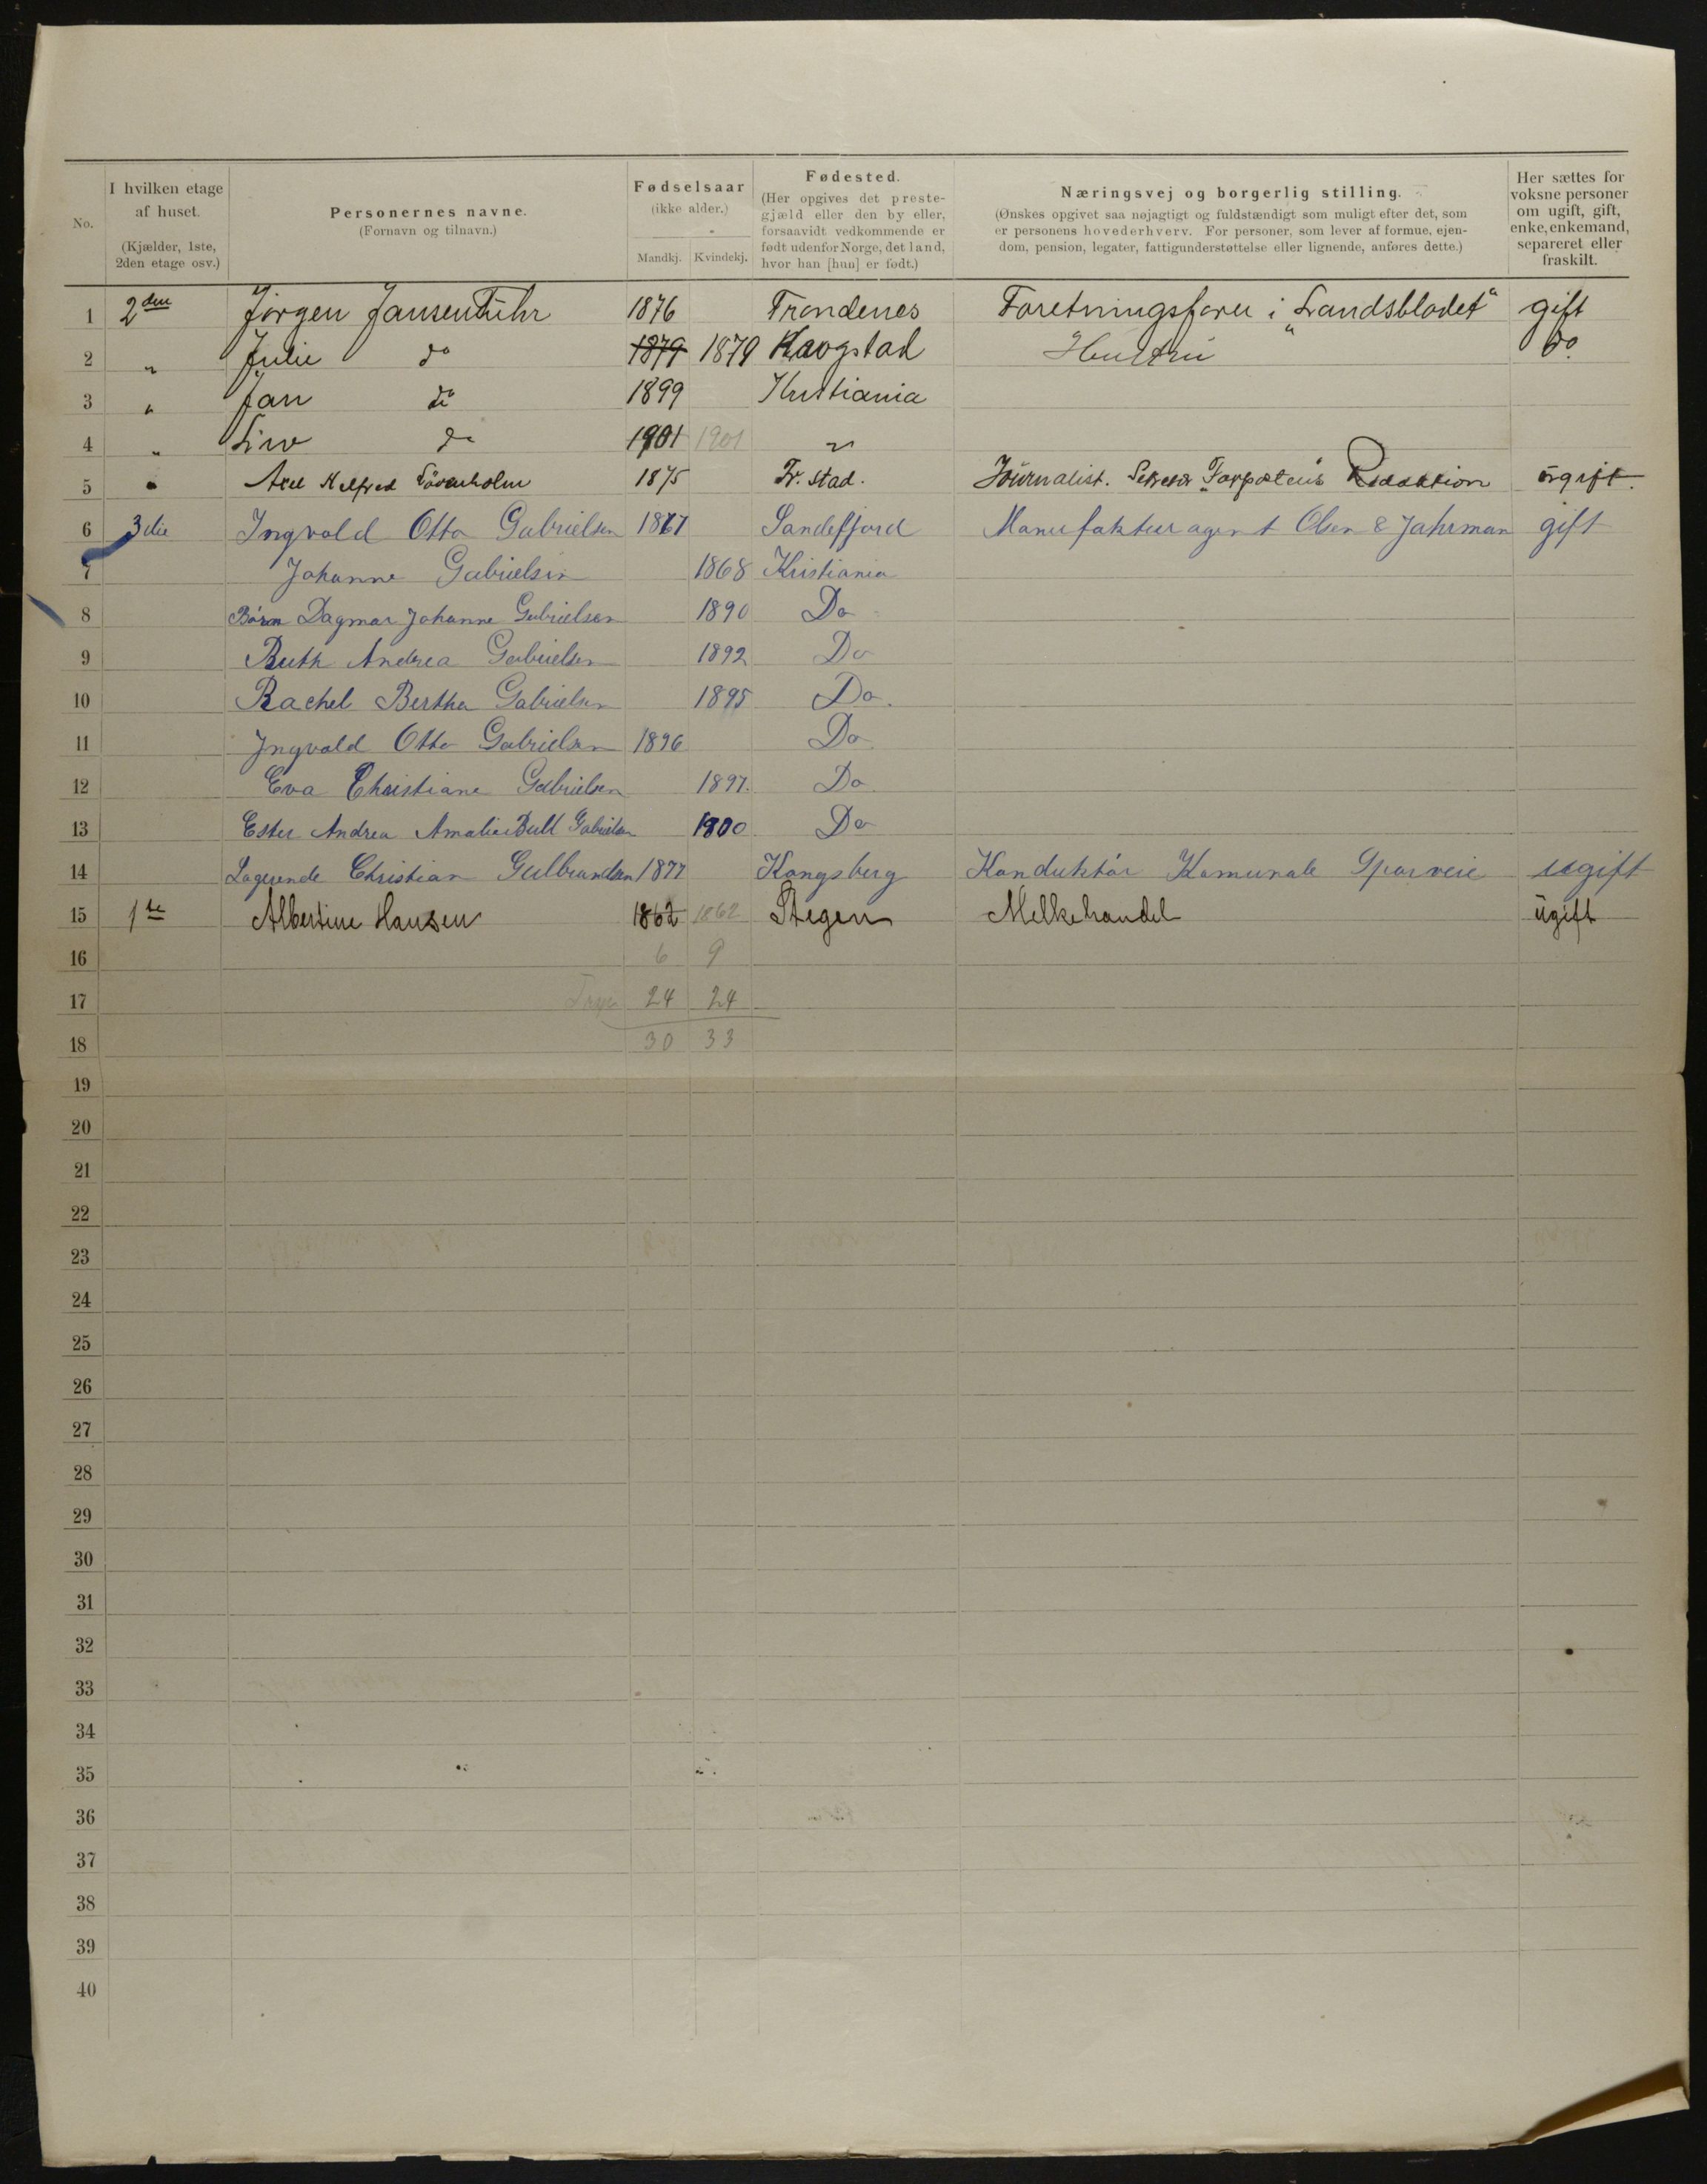 No. I hvilken etage af huset. (Kjælder, 1ste, 2den etage osv.) Personernes navne. (Fornavn og tilnavn.) Fødselsaar (ikke alder.) Mandkj. Kvindekj. Fødested. (Her opgives det prestegjæld eller den by eller, forsaavidt vedkommende er født udenfor Norge, det land, hvor han [hun] er født.) Næringsvej og borgerlig stilling. (Ønskes opgivet saa nøjagtigt og fuldstændigt som muligt efter det, som er personens hovederhverv. For personer, som lever af formue, ejendom, pension, legater, fattigunderstøttelse eller lignende, anføres dette.) Her sættes for voksne personer om ugift, gift, enke, enkemand, separeret eller fraskilt.
1 2den Jørgen Jansen Fuhr 1876 Trondenes Foretningsfører i „Landsbladet" gift
2 " Julie do 1879 1879 Hustru do
3 " Jan do 1899 Kristiania
4 " Liv do 1901 1901 "
5 " Axel 1875 Fr. stad. Journalist. Redaktion ugift.
6 3die Ingvald Otto Gabrielsen 1867 Sandefjord Manufaktur agent Olsen & Jahrman gift
7 Johanne Gabrielsen 1868 Kristiania
8 Børn Dagmar Johanne Gabrielsen 1890 Do
9 Ruth Andrea Gabrielsen 1892 Do
10 Rachel Berthe Gabrielsen 1895 Do.
11 Ingvald Otto Gabrielsen 1896 Do
12 Eva Christiane Gabrielsen 1897. Do
13 Ester Andrea Amalie Bull Gabrielsen 1900 Do
14 Logerende Christian Gulbrandsen 1877 Kongsberg Konduktør Komunale Sporveie ugift
15 1te Albertine Hansen 1862 1862 Stegen Melkehandel ugift
16 6 9
17 24 24
18 30 33
19
20
21
22
23
24
25
26
27
28
29
30
31
32
33
34
35
36
37
38
39
40